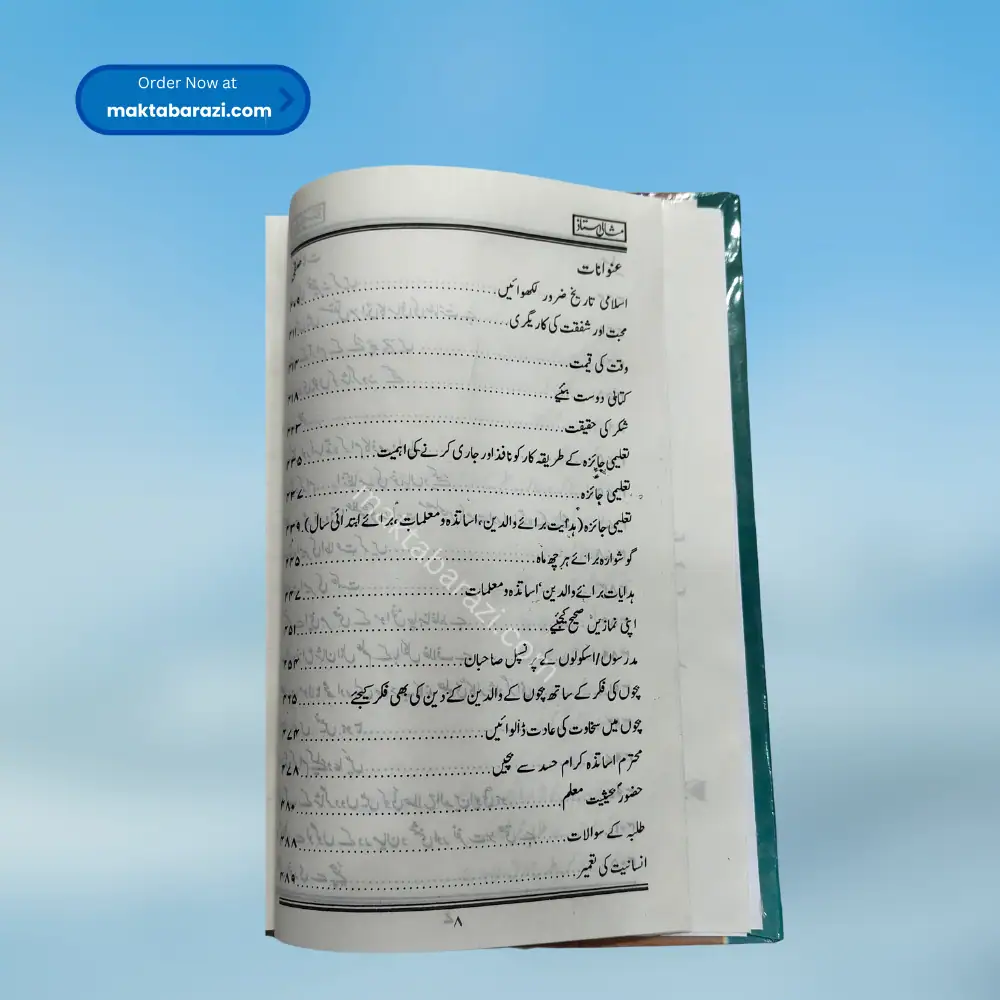 Order Now at
maktabarazi.com
مثالی استاذ
عنوانات
اسلامی تاریخ ضرور لکھوائیں
محبت اور شفقت کی کاریگری
وقت کی قیمت
کتابی دوست بنیئے
شکر کی حقیقت
تعلیمی جائزہ کے طریقہ کار کو نافذ اور جاری کرنے کی اہمیت
تعلیمی جائزہ
تعلیمی جائزہ (ہدایت برائے والدین، اساتذہ و معلمات، برائے ابتدائی سال)
گوشوارہ برائے ہر چھ ماہ
ہدایات برائے والدین، اساتذہ و معلمات
اپنی نمازیں صحیح کیجئیے
مدرسوں/اسکولوں کے پرنسپل صاحبان
بچوں کی فکر کے ساتھ بچوں کے والدین کے دین کی بھی فکر کیجئے
بچوں میں سخاوت کی عادت ڈالوائیں
محترم اساتذہ کرام حسد سے بچیں
حضور بحیثیت معلم
طلبہ کے سوالات
انسانیت کی تعمیر
۸
maktabarazi.com